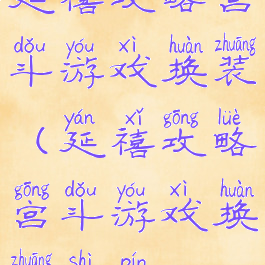 延禧攻略宫
dǒu yóu xì huàn zhuāng
斗游戏换装
yán xǐ gōng lüè
（延禧攻略
gōng dǒu yóu xì huàn
宫斗游戏换
zhuāng shì pín